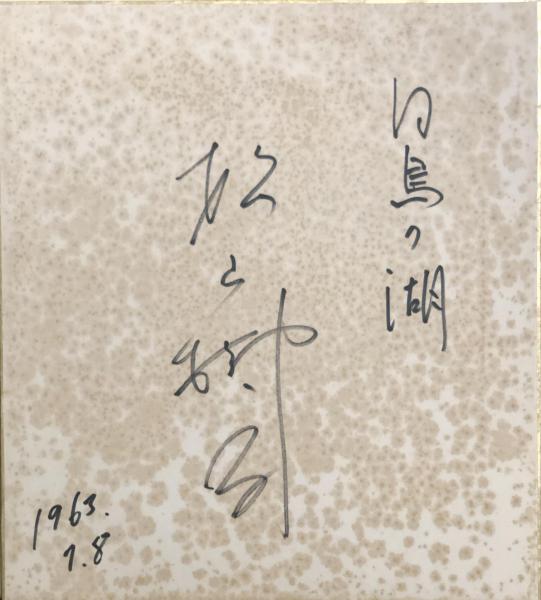 白鳥の湖
松山樹子
1963.
7.8